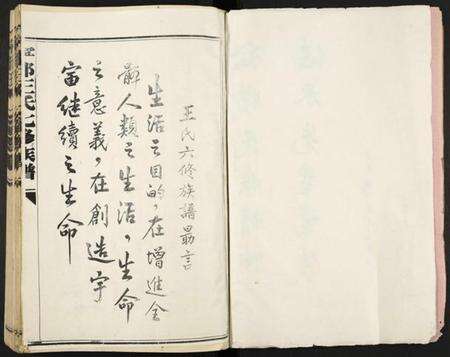 王氏六修族譜勗言
生活之目的，在增進全
人類之生活，生命
之意義，在創造宇
宙繼續之生命
王氏六修族譜